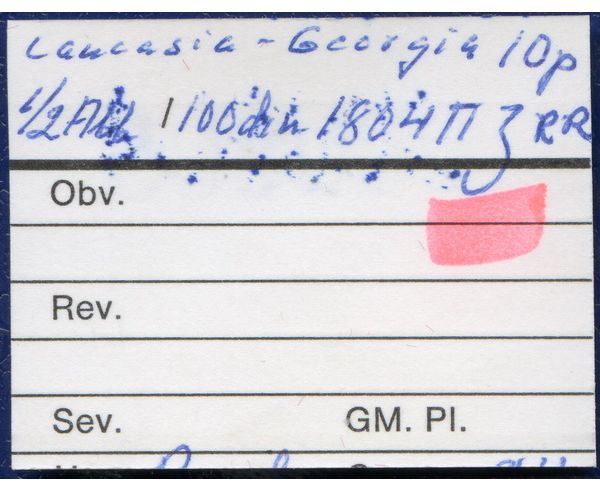 Caucasia - Georgia 10p
1/2 Abb /100 din 1804 ПЗ RR
Obv.
Rev.
Sev. GM. Pl.